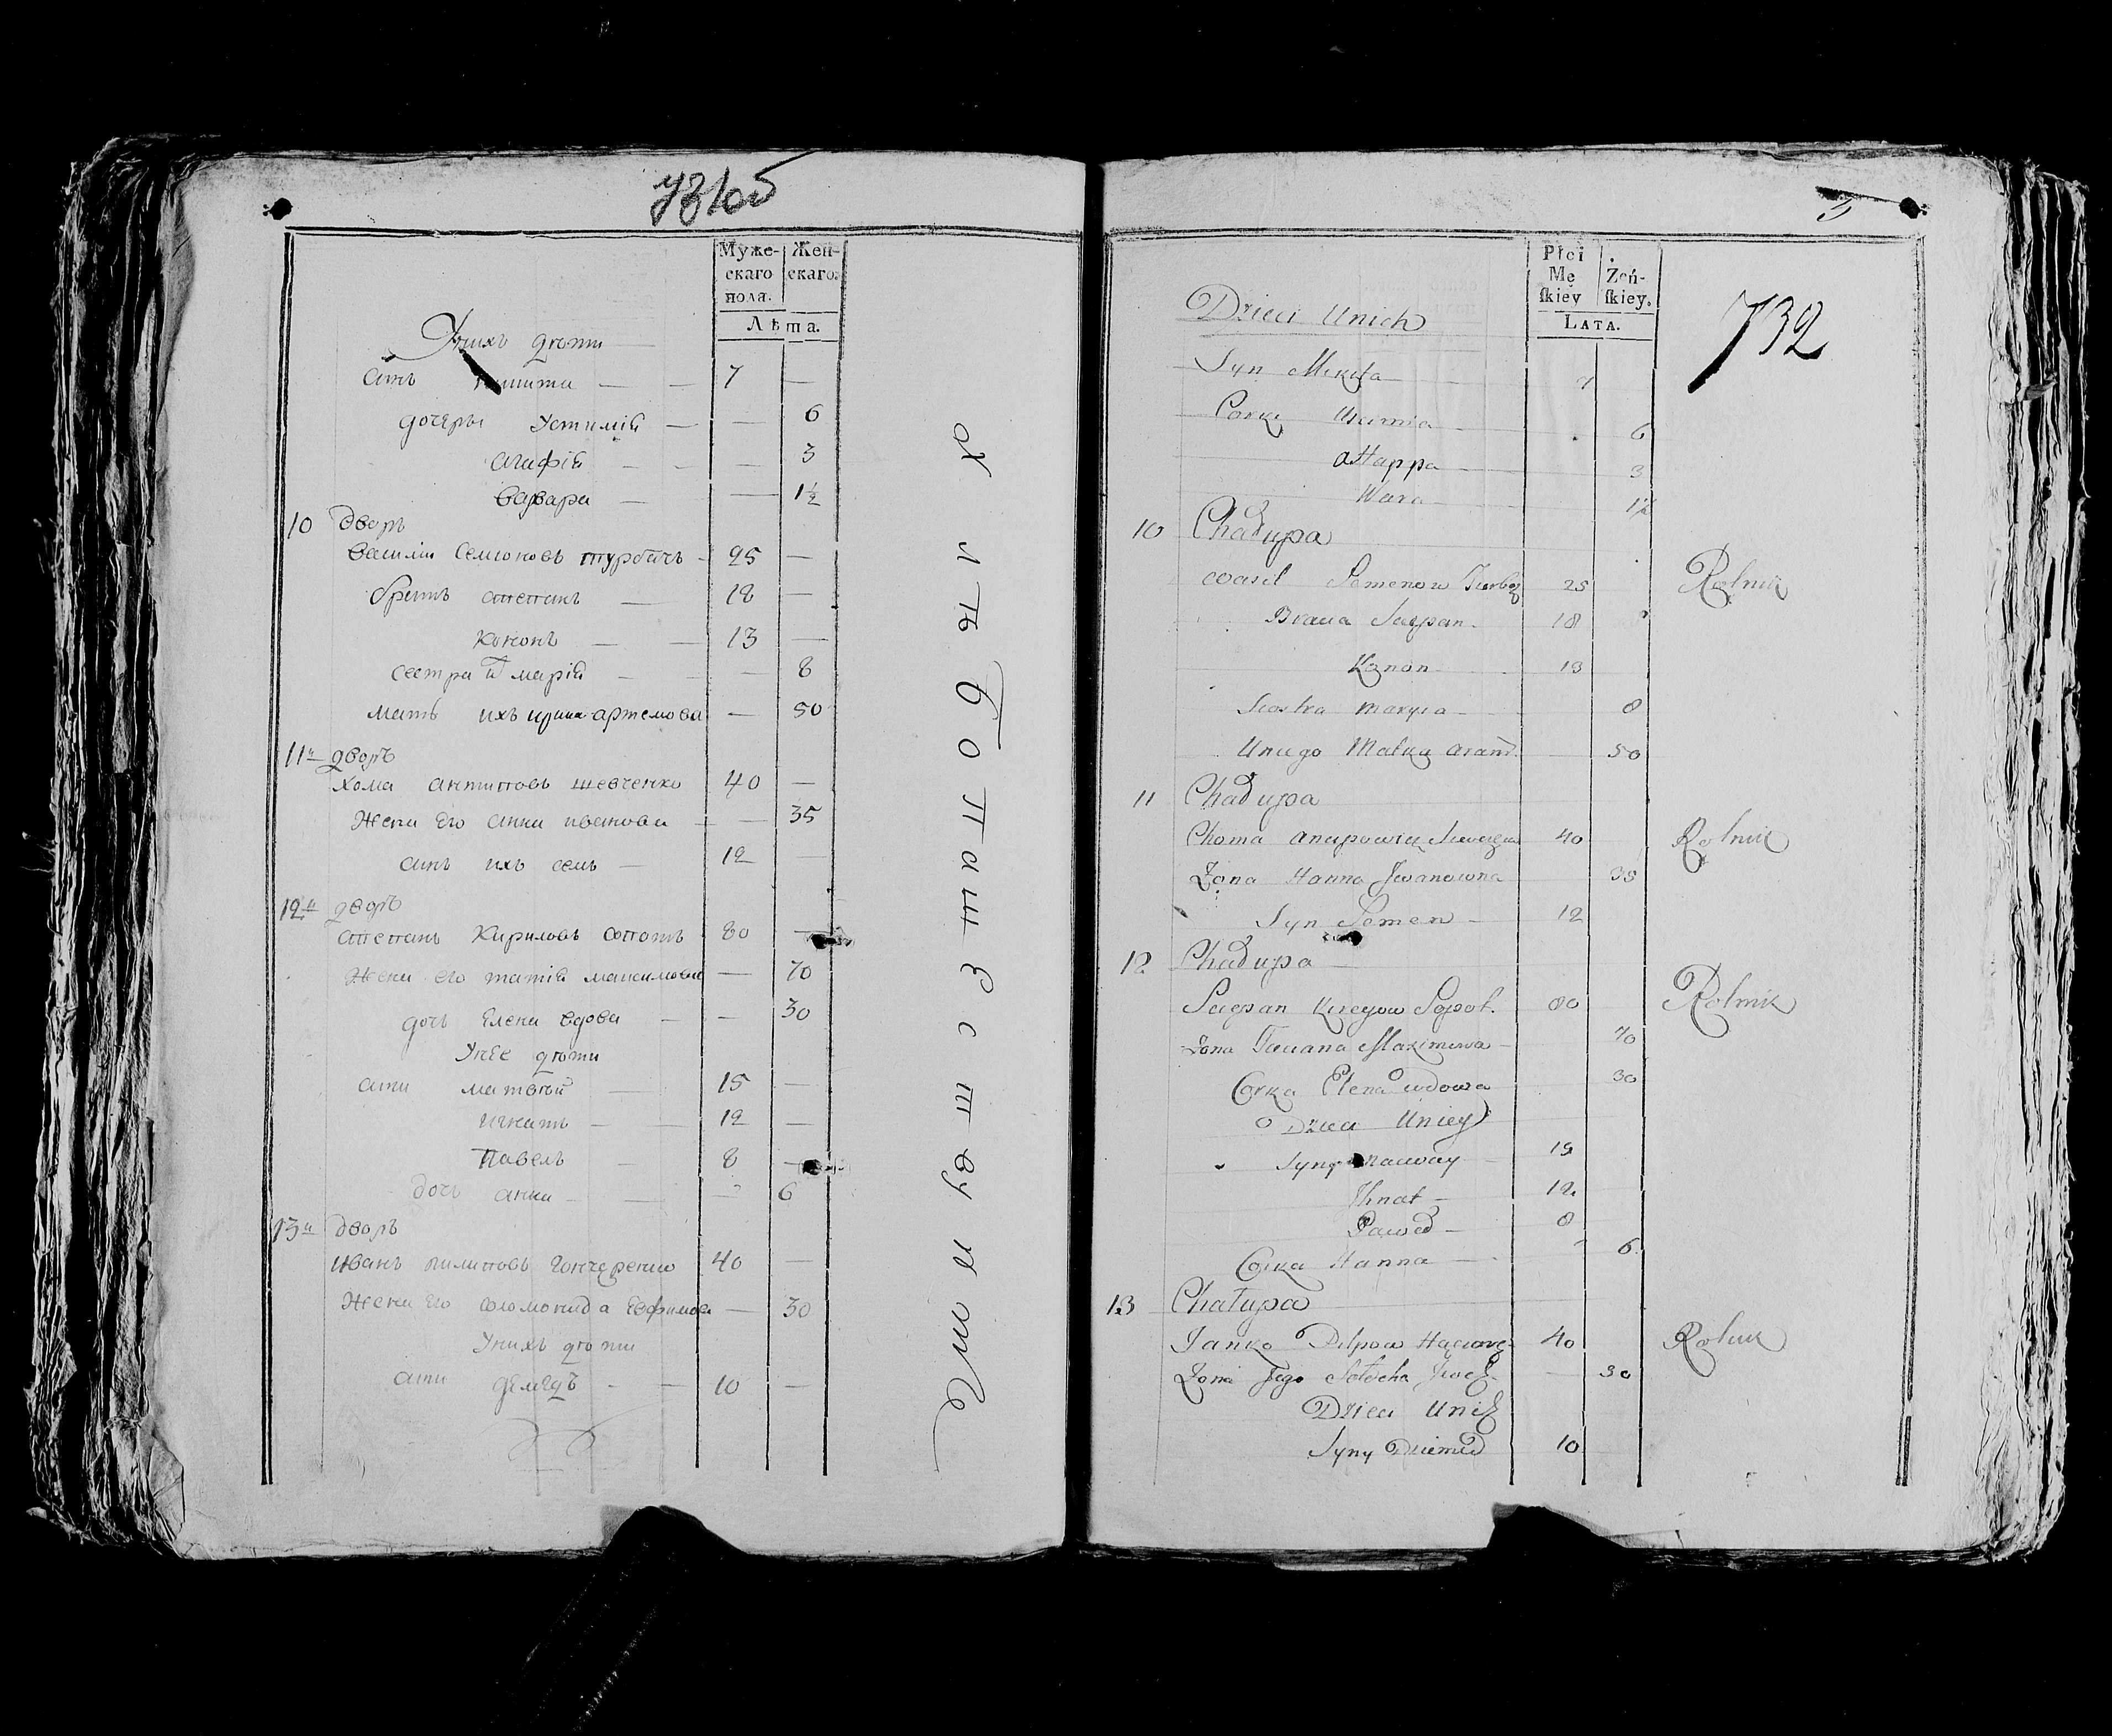 Муже-
скаго
пола.
Жен-
скаго.
Лѣта.
Унихъ дѣти
сынъ 7 —
дочеры Устимія — — 6
агафія — — 3
варвара — — 1½
10 дворъ
василій Семіоновъ турбачъ - 25 —
братъ степанъ — 18 —
кононъ — 13 —
сестра марія — — 8
мать ихъ ирина артемова — 50
11й дворъ
хома антиповъ шевченко 40 —
жена его анна иванова — 35
сынъ ихъ семъ — 12 —
12й дворъ
степанъ Кириловъ сопотъ 80 —
жена его татія максимова — 70
дочь Елена вдова — — 30
Унее дѣти
сыни матвей — 15 —
игнатъ — 12 —
павелъ — 8 —
дочь анна — — 6
13й дворъ
иванъ пилиповъ гончаренко 40 —
жена его соломонида Евфимова — 30
Унихъ дѣти
сыни демедъ - 10 —
732
Płci
Mę
ſkiey
Żeń-
ſkiey.
LATA.
Dzieci Unich
Syn Mikita 7
Corki 6
3
Wara 1½
10 Chałupa
Wasil Semenow 25 Rolnik
Bracia Sciepan 18
Konon 13
Siostra Maryia 8
Unich Matka 50
11 Chałupa
Choma 40 Rolnik
Żona Hanna Iwanowna 35
Syn Semen 12
12 Chałupa
Sciepan Sopot. 80 Rolnik
Żona Taciana Maximowa 70
Corka Elena wdowa 30
Dzieci Uniey
Syny Macwiey 15
Ihnat 12
Paweł 8
Corka Hanna 6
13 Chałupa
Janko Pilpow 40 Rolnik
Żona Jego 30
Dzieci Unich
Syny Dziemid 10